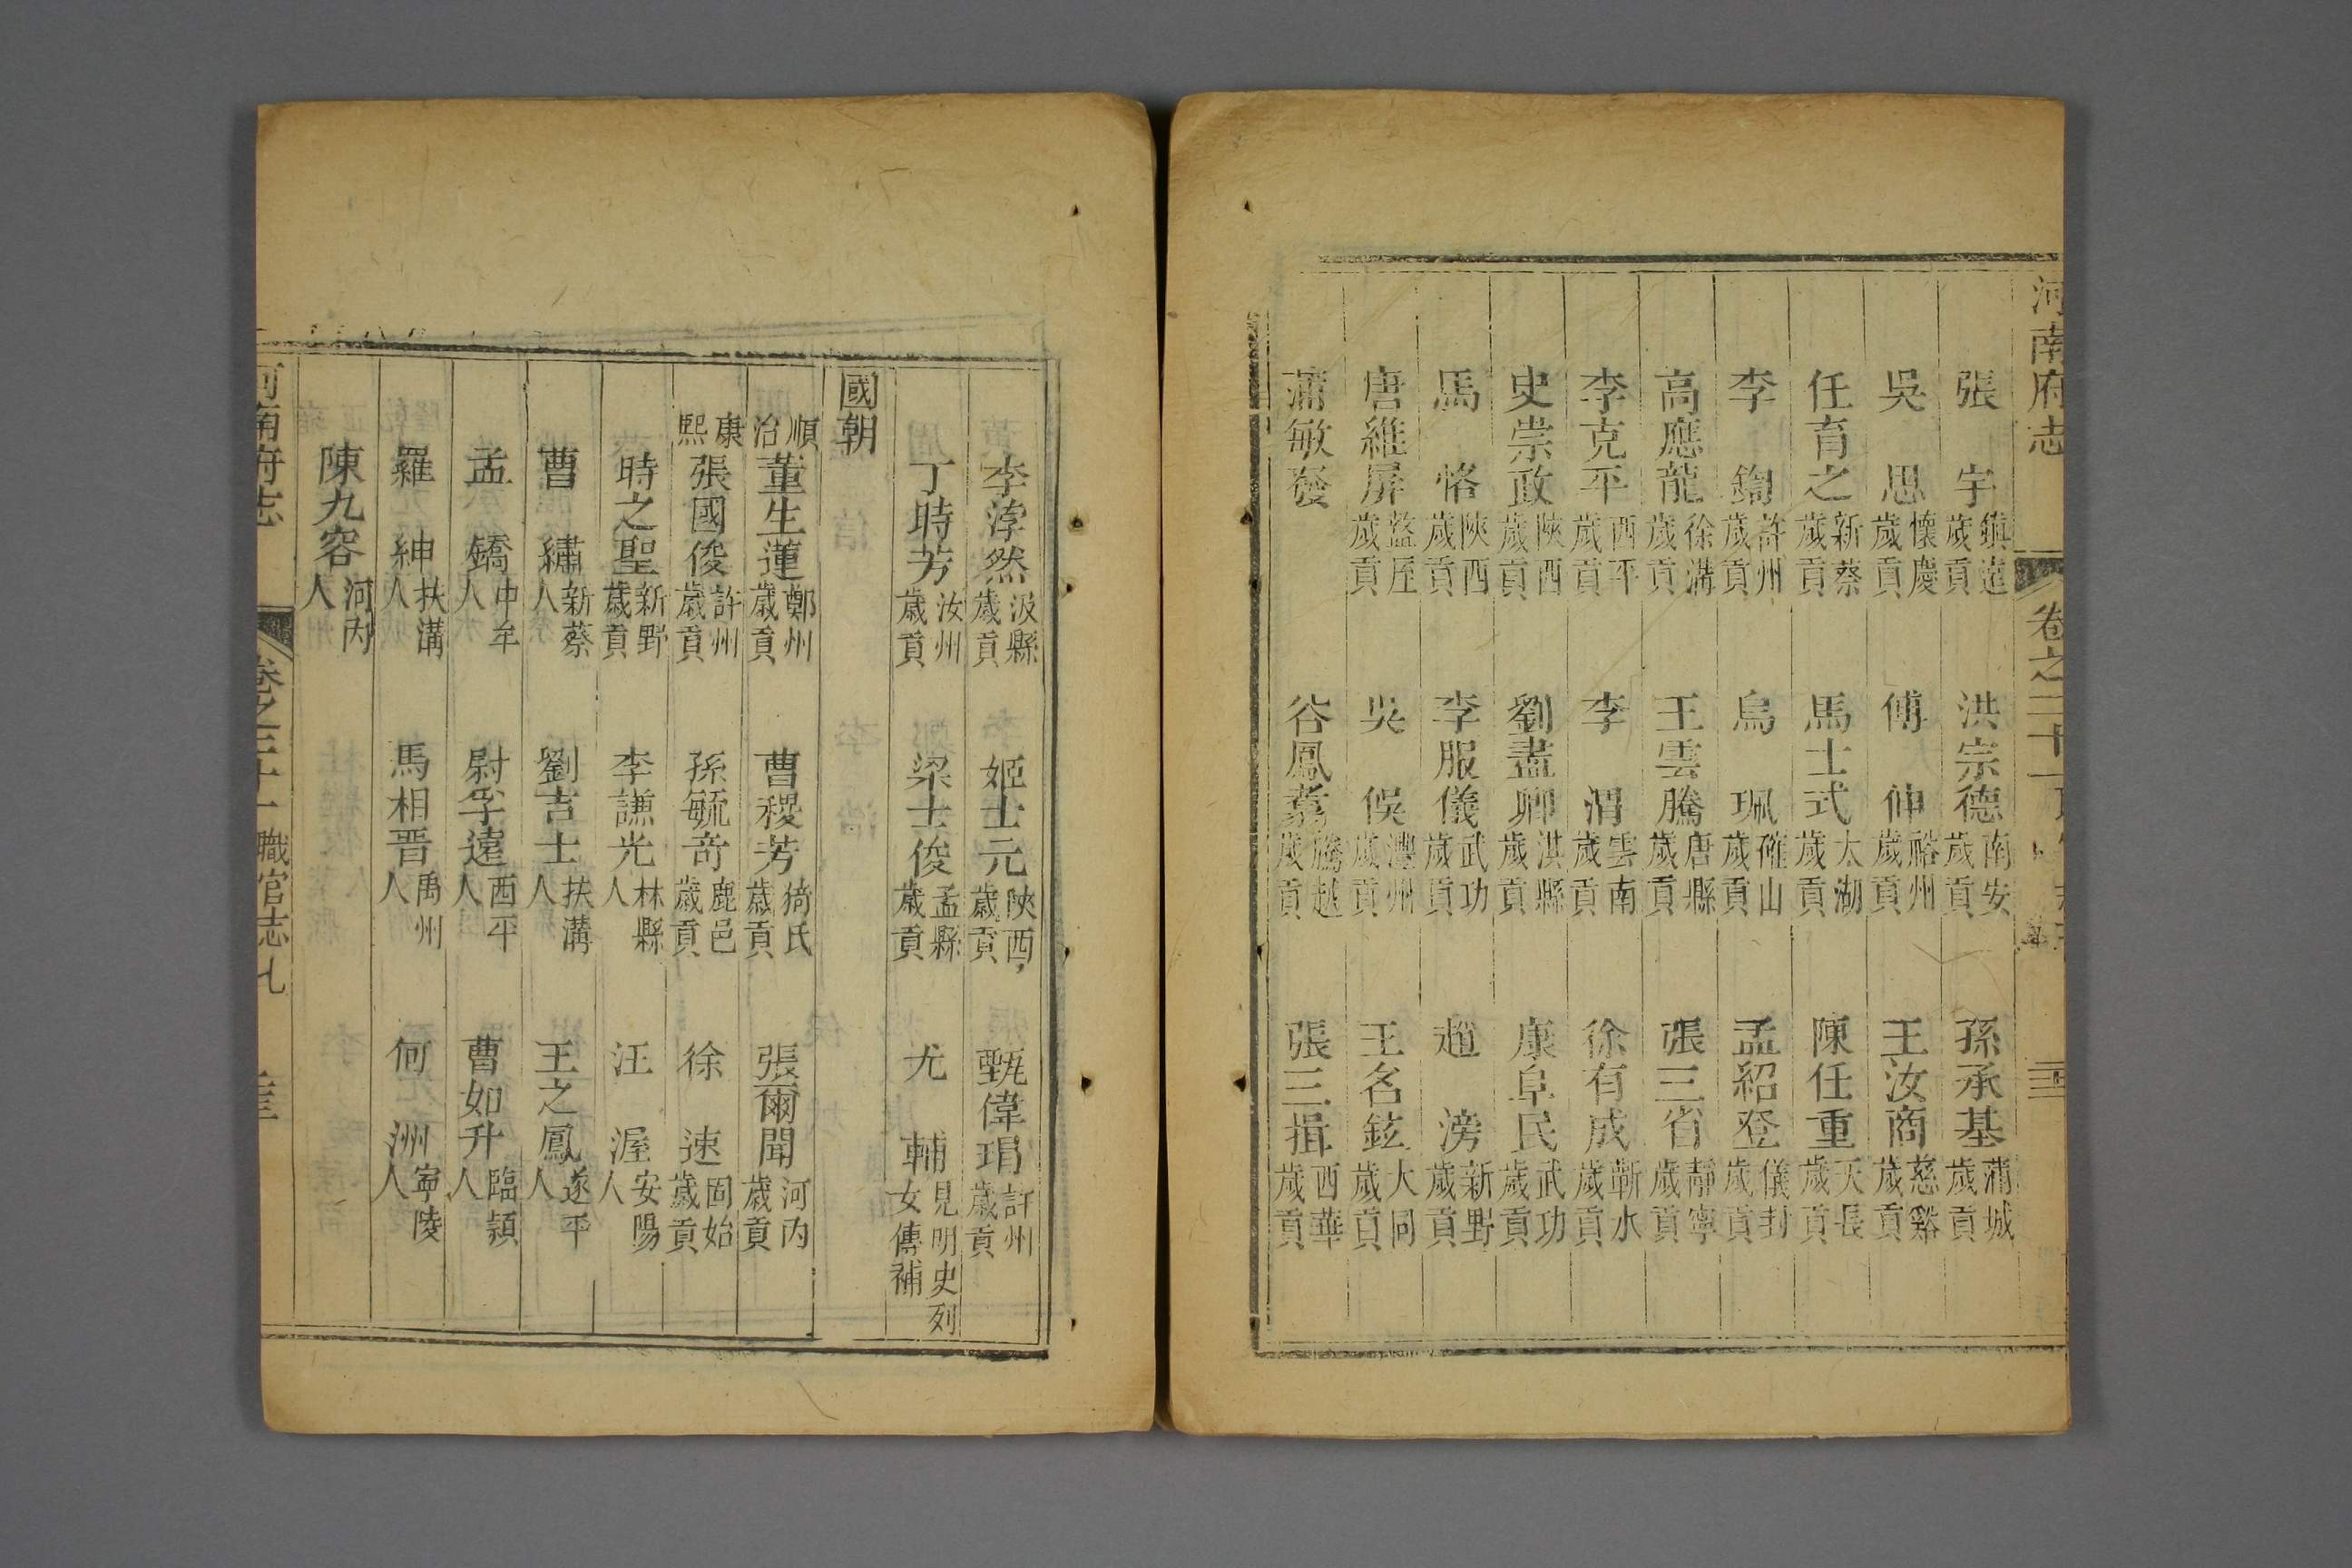 河南府志
卷之二十
張宇鎮遠歲貢 洪宗德南安歲貢 孫承基蒲城歲貢
吳思懷慶歲貢 傅伸裕州歲貢 王汝商慈谿歲貢
任育之新蔡歲貢 馬士式太湖歲貢 陳任重天長歲貢
李鋾許州歲貢 烏珮確山歲貢 孟紹登儀封歲貢
高應龍徐溝歲貢 王雲騰唐縣歲貢 張三省靜寧歲貢
李克平西平歲貢 李渭雲南歲貢 徐有成蘄水歲貢
史崇政陝西歲貢 劉藎卿淇縣歲貢 康阜民武功歲貢
馬恪陝西歲貢 李服儀武功歲貢 趙滂新野歲貢
唐維屏盩厔歲貢 吳俁歲貢 王名鉉大同歲貢
蒲敏發 谷鳳騰越歲貢 張三揖西華歲貢
李淳然汲縣歲貢 姬士元陝西歲貢 甄偉瑁許州歲貢
丁時芳汝州歲貢 梁士俊孟縣歲貢 尤輔見明史列女傳補
國朝
順治 董生蓮鄭州歲貢 曹稷芳猗氏歲貢 張爾聞河內歲貢
康熙 張國俊許州歲貢 孫毓奇鹿邑歲貢 徐速固始歲貢
時之聖新野歲貢 李謙光林縣人 汪渥安陽人
曹繡新蔡人 劉吉士扶溝人 王之鳳遂平人
孟鐈中牟人 尉孚遠西平人 曹如升臨潁人
羅紳扶溝人 馬相晋禹州人 何洲寧陵人
陳九容河內人
河南府志
卷之二十一 職官志七